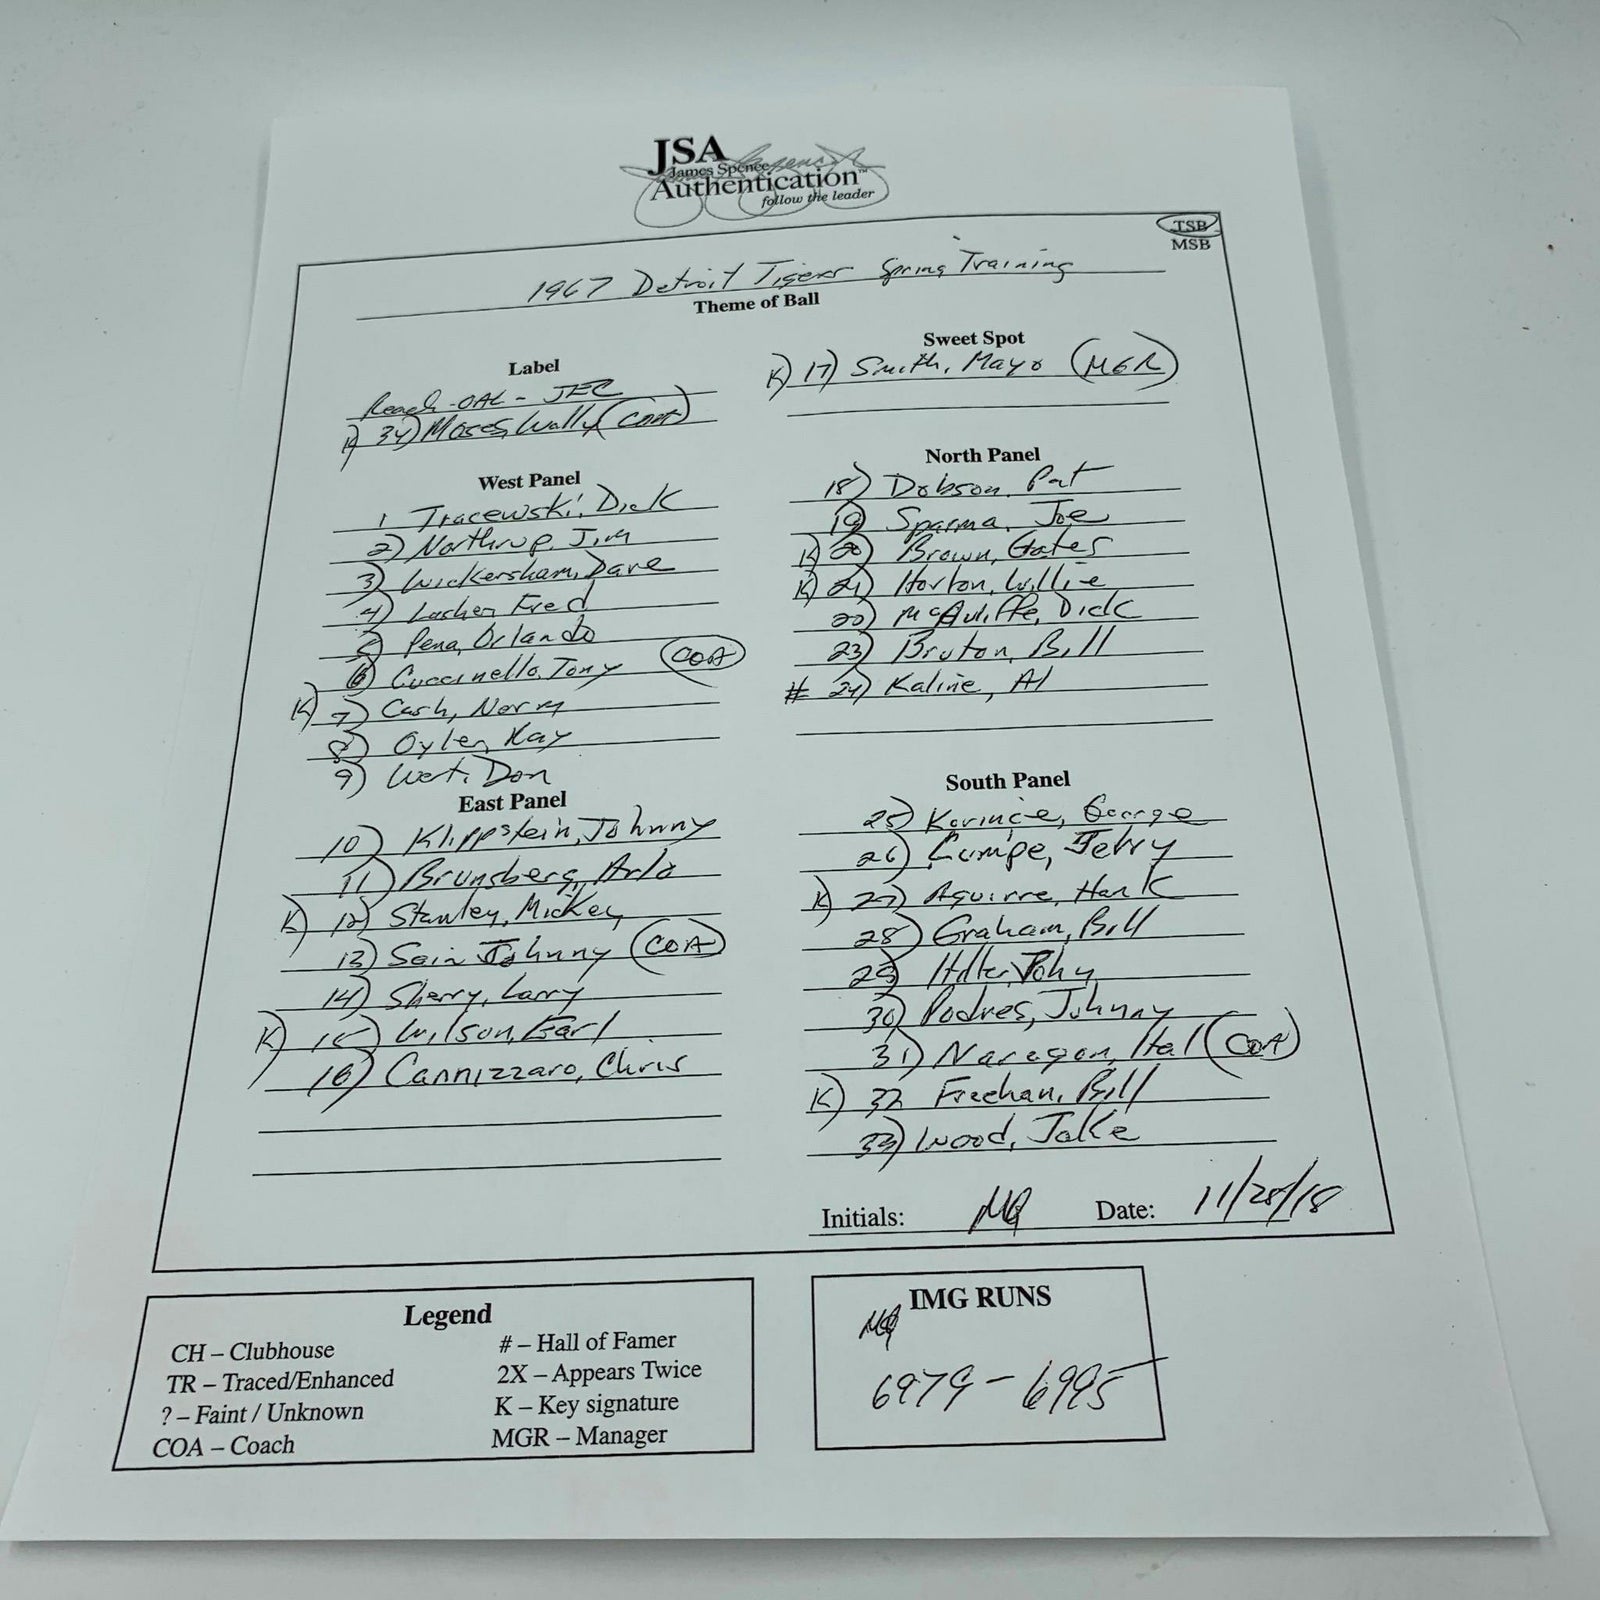 JSA
James Spence
Authentication™
follow the leader
TSB
MSB
1967 Detroit Tigers Spring Training
Theme of Ball
Label
Reach-OAL-JEC
K) 34) Moses, Wally (COA)
Sweet Spot
K) 17) Smith, Mayo (MGR)
West Panel
1 Tracewski, Dick
2) Northrup, Jim
3) Wickersham, Dave
4) Lasher, Fred
5) Pena, Orlando
6) Cuccinello, Tony (COA)
K) 7) Cash, Norm
8) Oyler, Ray
9) Wert, Don
North Panel
18) Dobson, Pat
19) Sparma, Joe
K) 20) Brown, Gates
K) 21) Horton, Willie
22) McAuliffe, Dick
23) Bruton, Bill
# 24) Kaline, Al
East Panel
10) Klippstein, Johnny
11) Brunsberg, Arlo
K) 12) Stanley, Mickey
13) Sain, Johnny (COA)
14) Sherry, Larry
K) 15) Wilson, Earl
16) Cannizzaro, Chris
South Panel
25) Korince, George
26) Lumpe, Jerry
K) 27) Aguirre, Hank
28) Graham, Bill
29) Hiller, John
30) Podres, Johnny
31) Naragon, Hal (COA)
K) 32 Freehan, Bill
33) Wood, Jake
Initials: MQ Date: 11/28/18
Legend
CH – Clubhouse
TR – Traced/Enhanced
? – Faint / Unknown
COA – Coach
# – Hall of Famer
2X – Appears Twice
K – Key signature
MGR – Manager
IMG RUNS
MQ
6979-6995